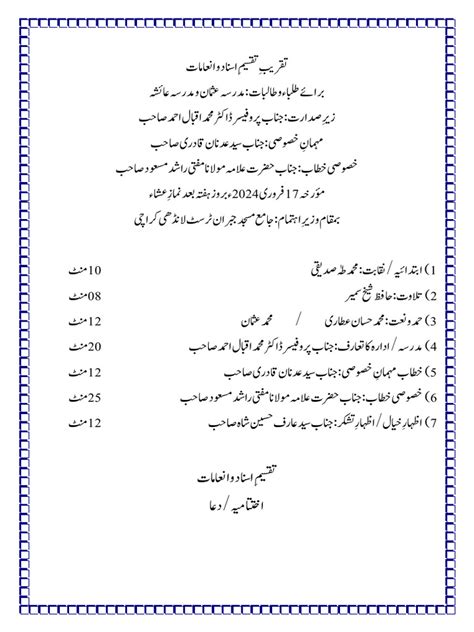 تقریبِ تقسیمِ اسناد و انعامات
برائے طلباء و طالبات: مدرسہ عثمان و مدرسہ عائشہ
زیرِ صدارت: جناب پروفیسر ڈاکٹر محمد اقبال احمد صاحب
مہمانِ خصوصی: جناب سید عدنان قادری صاحب
خصوصی خطاب: جناب حضرت علامہ مولانا مفتی راشد مسعود صاحب
مؤرخہ 17 فروری 2024ء بروز ہفتہ بعد نمازِ عشاء
بمقام و زیرِ اہتمام: جامع مسجد جبران ٹرسٹ لانڈھی کراچی
1) ابتدائیہ / نقابت: محمد طہٰ صدیقی 10 منٹ
2) تلاوت: حافظ شیخ سمیر 08 منٹ
3) حمد و نعت: محمد حسان عطاری / محمد عثمان 12 منٹ
4) مدرسہ / ادارہ کا تعارف: جناب پروفیسر ڈاکٹر محمد اقبال احمد صاحب 20 منٹ
5) خطاب مہمانِ خصوصی: جناب سید عدنان قادری صاحب 12 منٹ
6) خصوصی خطاب: جناب حضرت علامہ مولانا مفتی راشد مسعود صاحب 25 منٹ
7) اظہارِ خیال / اظہارِ تشکر: جناب سید عارف حسین شاہ صاحب 12 منٹ
تقسیمِ اسناد و انعامات
اختتامیہ / دعا